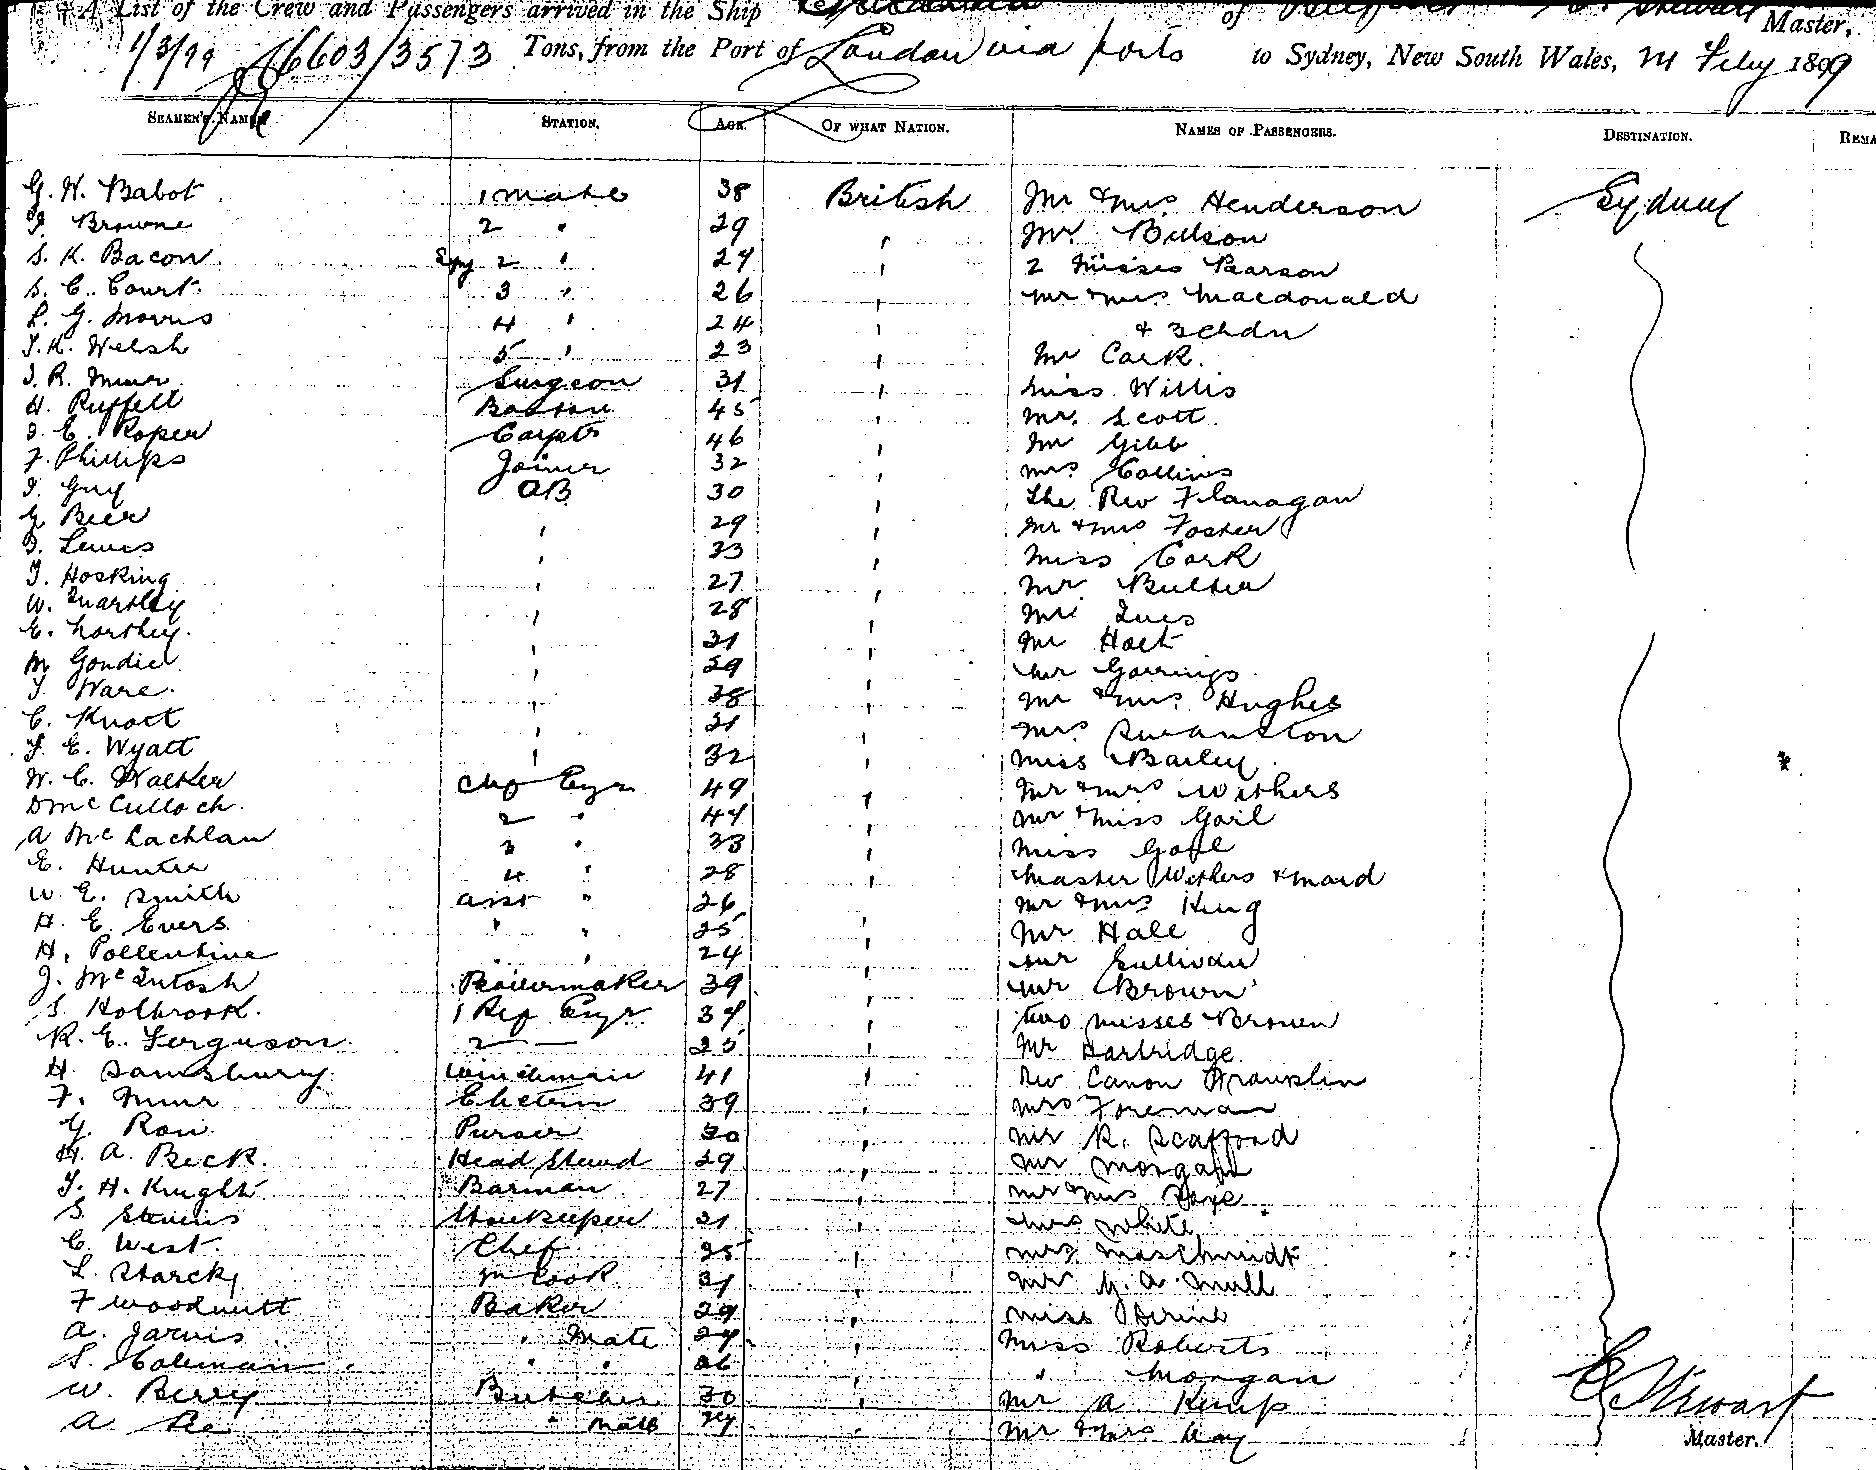 A List of the Crew and Passengers arrived in the Ship of Master,
1/3/99 6603/3573 Tons, from the Port of London via ports to Sydney, New South Wales, Feby 1899
SEAMEN'S NAMES STATION. AGE. OF WHAT NATION. NAMES OF PASSENGERS. DESTINATION. REMA
G. W. Babot 1 Mate 38 British Mr & Mrs Henderson Sydney
Browne 2 " 29 " Mr Billson
S. K. Bacon 2 " " 2 Misses Pearson
S. C. Court 3 " 26 " Mr & Mrs Macdonald
L. G. Morris 4 " 24 " & 3 chdn
Welsh 5 " 23 " Mr Cark
R. Muir Surgeon 31 " Miss Willis
H. Ruffell Boatsn 45 " Mr. Scott
E. Roper Carptr 46 " Mr Gibb
F. Phillips Joiner 32 " Mrs Collins
Guy AB 30 " The Rev Flanagan
Beer " 29 " Mr & Mrs Foster
Lewis " 33 " Miss Cork
Hosking " 27 " Mr Butler
W. Quartley " 28 " Mr Ives
E. Northey " 31 " Mr Holt
M Goudie " 29 " Mr Gorringe
Ware " 38 " Mr & Mrs Hughes
C. Knott " 21 " Mrs Swanston
E. Wyatt " 32 " Miss Bailey
W. C. Walker Chf Engr 49 " Mr & Mrs Withers
D McCulloch 2 " " Mr & Miss Gail
A McLachlan 3 " 33 " Miss Gall
E. Hunter 4 " 28 " Master Withers & maid
W. E. Smith Asst " 26 " Mr & Mrs King
H. E. Evers " " 25 " Mr Hall
H. Pollentine " " 24 " Mr Sullivan
J. McIntosh Boilermaker 39 " Mr Brown
S Holbrook 1 Ref Engr " two Misses Brown
R. E. Ferguson 2 — 25 " Mr Hartridge
H. Sainsbury Winchman 41 " Rev Canon Franklin
F. Muir Electrn 39 " Mrs Foreman
G. Row Purser 30 " Mr R. Scafford
H. A. Beck Head Stewd 29 " Mr Morgan
H. Knight Barman 27 " Mr & Mrs
S Stevens Storekeeper 21 " Mrs White
C. West Chef 25 " Mrs Maschmedt
L. Starck Cook 31 " Mr A. Mull
F Woodnutt Baker 29 " Miss
A. Jarvis " Mate " Miss Roberts
S. Coleman " " 26 " " Morgan
W. Berry Butcher 30 " Mr A Kemp
A " Mate 24 " Mr & Mrs Way
C Stewart
Master.